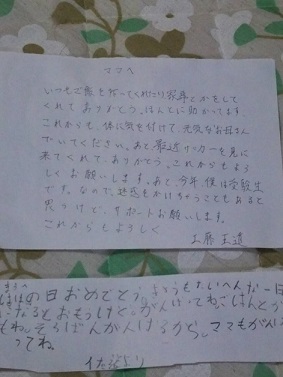 ママへ
いつもご飯を作ってくれたり家事とかをして
くれてありがとう。ほんとに助かってます
これからも、体に気を付けて、元気なお母さん
でいてください。あと、最近サッカーを見に
来てくれて、ありがとう。これからもよろ
しくお願いします。あと、今年、僕は受験生
です。なので、迷惑をかけちゃうこともあると
思うけど、サポートお願いします。
これからもよろしく
工藤王遥
の日おめでとう。きょうもたいへんな一日
になるとおもうけど、がんばってね。ごはんとか
もね。そろばんがんばるから、ママもがんば
ってね。
より